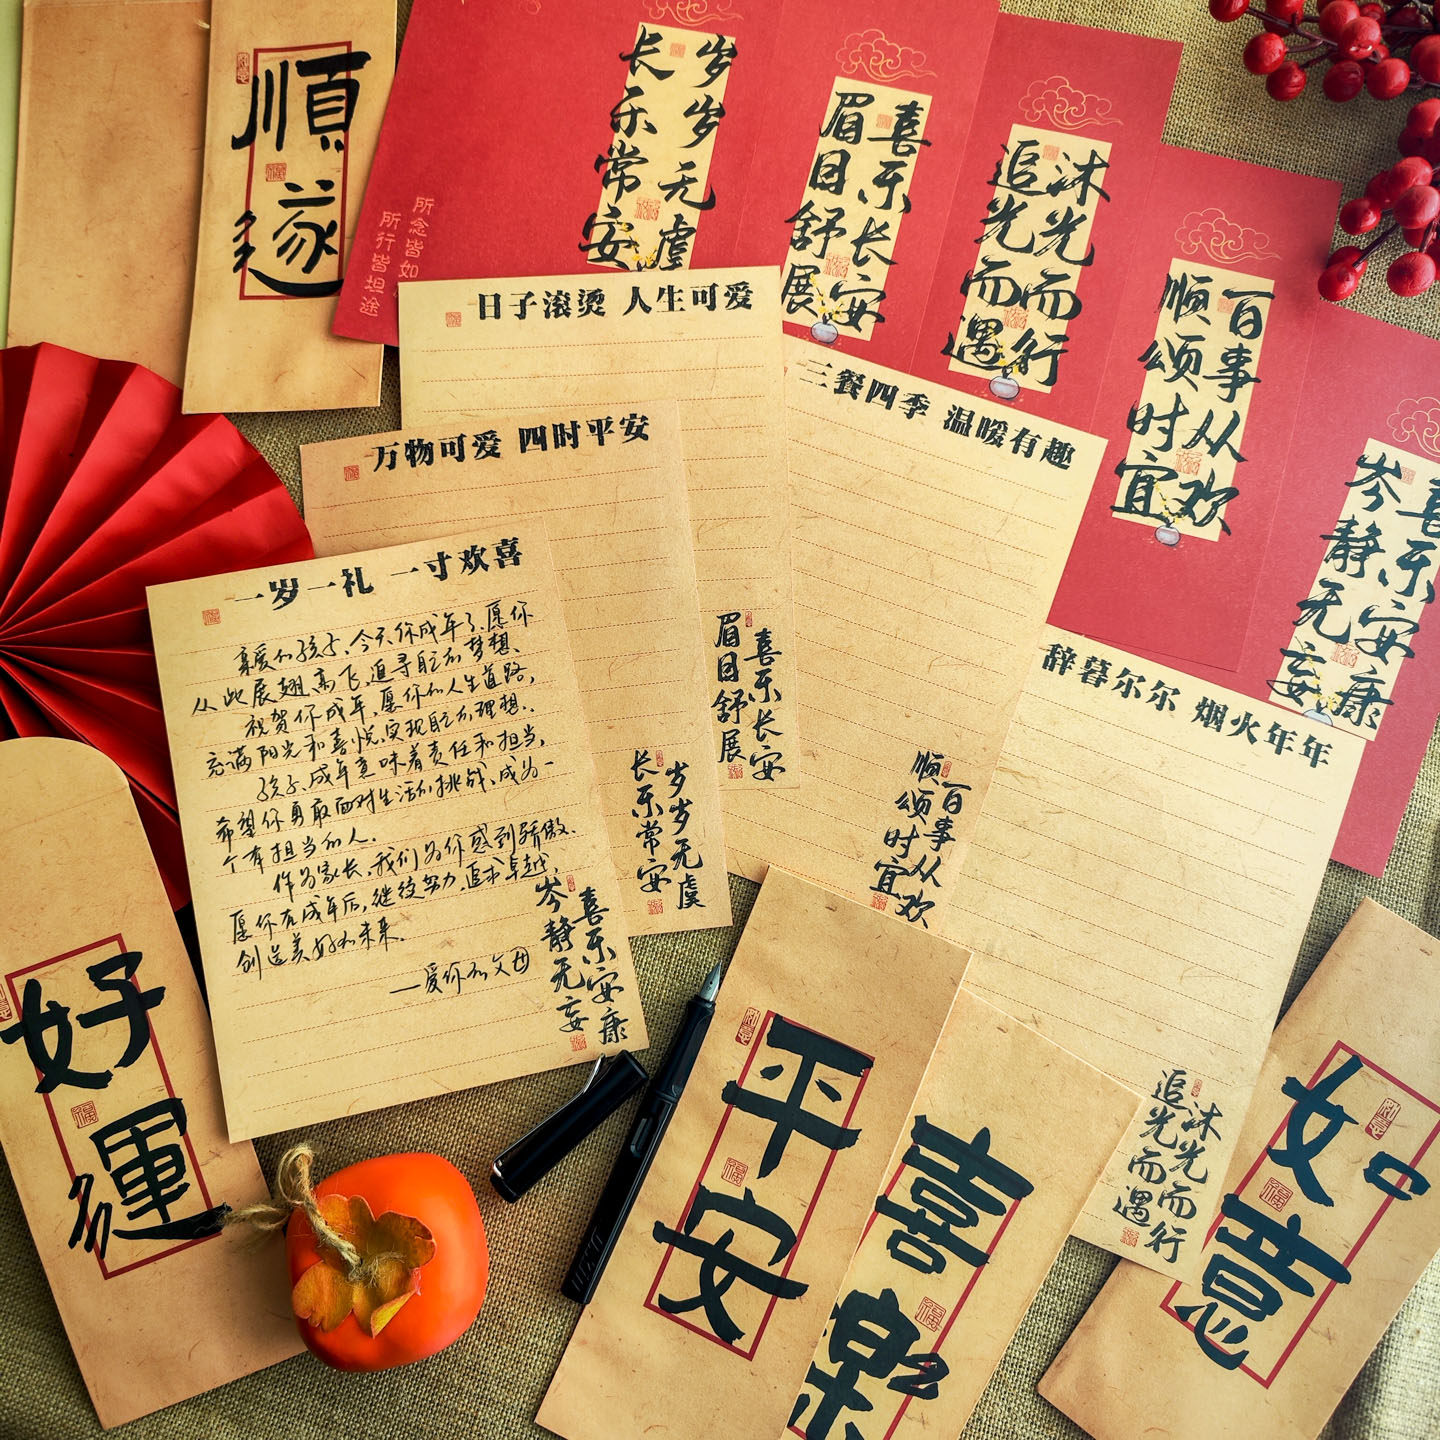 順遂
岁岁无虞
长乐常安
所念皆如
所行皆坦途
喜乐长安
眉目舒展
沐光而行
追光而遇
百事从欢
顺颂时宜
喜乐安康
岑静无妄
日子滚烫 人生可爱
喜乐长安
眉目舒展
万物可爱 四时平安
岁岁无虞
长乐常安
三餐四季 温暖有趣
百事从欢
顺颂时宜
辞暮尔尔 烟火年年
沐光而行
追光而遇
一岁一礼 一寸欢喜
亲爱的孩子、今天你成年了、愿你
从此展翅高飞,追寻自己的梦想、
祝贺你成年、愿你的人生道路,
充满阳光和喜悦,实现自己的理想.
孩子、成年意味着责任和担当,
希望你勇敢面对生活的挑战、成为一
个有担当的人.
作为家长,我们为你感到骄傲.
愿你在成年后,继续努力,追求卓越,
创造美好的未来.
—爱你的父母
喜乐安康
岑静无妄
好運
平安
喜樂
如意
福